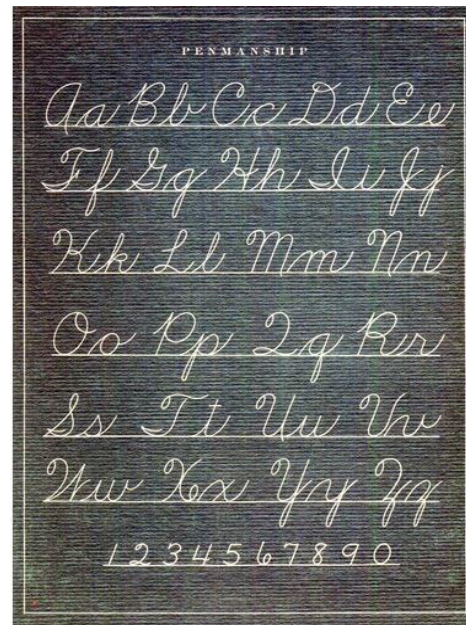 PENMANSHIP
Aa Bb Cc Dd Ee
Ff Gg Hh Ii Jj
Kk Ll Mm Nn
Oo Pp Qq Rr
Ss Tt Uu Vv
Ww Xx Yy Zz
1 2 3 4 5 6 7 8 9 0